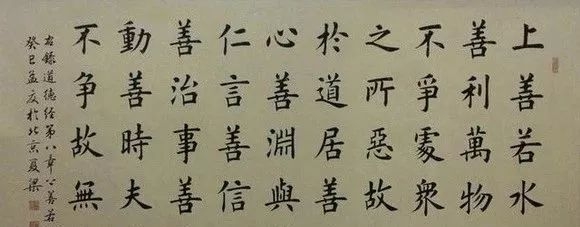 上善若水
善利萬物
不爭處衆
之所惡故
於道居善
心善淵與
仁言善信
善治事善
動善時夫
不争故無
右錄道德經第八章上善若
癸巳孟夏於北京夏梁